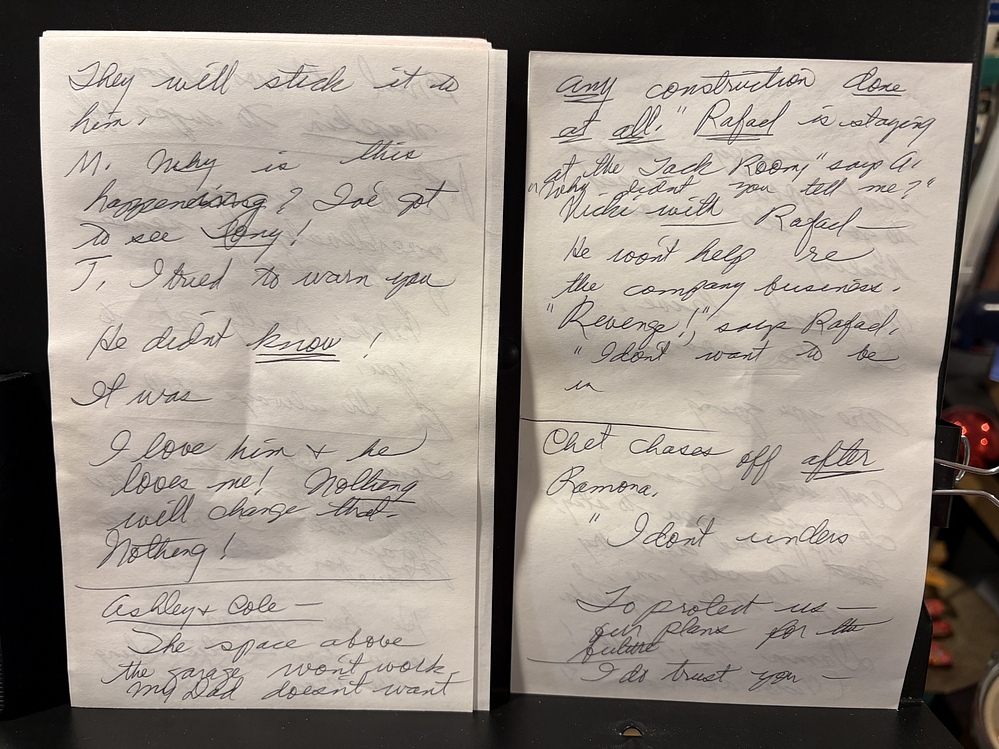 They will stick it to
him.
M. Why is this
happening? I've got
to see Tony!
J, I tried to warn you
He didn't know!
It was
I love him & he
loves me! Nothing
will change that.
Nothing!
Ashley & Cole —
The space above
the garage won't work
My Dad doesn't want
any construction done
at all." Rafael is staying
at the Tack Room" says A.
"Why didn't you tell me?"
Nicki with Rafael —
He won't help re
the company business.
"Revenge!," says Rafael.
"I don't want to be
in
Chet chases off after
Ramona.
"I don't unders
To protect us —
our plans for the
future
I do trust you —